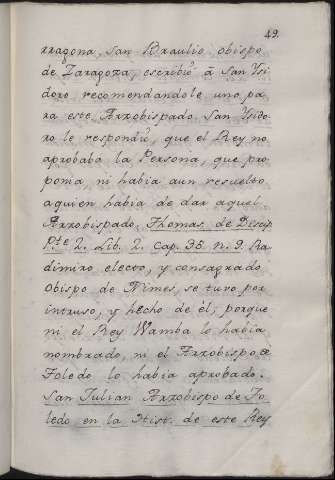 49.
rragona, San Braulio obispo
de Zaragoza, escribió á San Ysi
doro recomendandole uno pa
ra este Arzobispado San Ysido
ro le respondió, que el Rey no
aprobaba la Persona, que pro
ponia, ni habia aun resuelto
aquien habia de dar aquel
Arzobispado. Thomas. de Descip
P.te 2. Lib. 2. Cap. 35. n. 9. Ra
dimiro electo, y consagrado
Obispo de Nimes, se tuvo por
intruso, y hecho de él; porque
ni el Rey Wamba lo habia
nombrado, ni el Arzobispo de
Toledo lo habia aprobado.
San Julian Arzobispo de To
ledo en la Hist. de este Rey